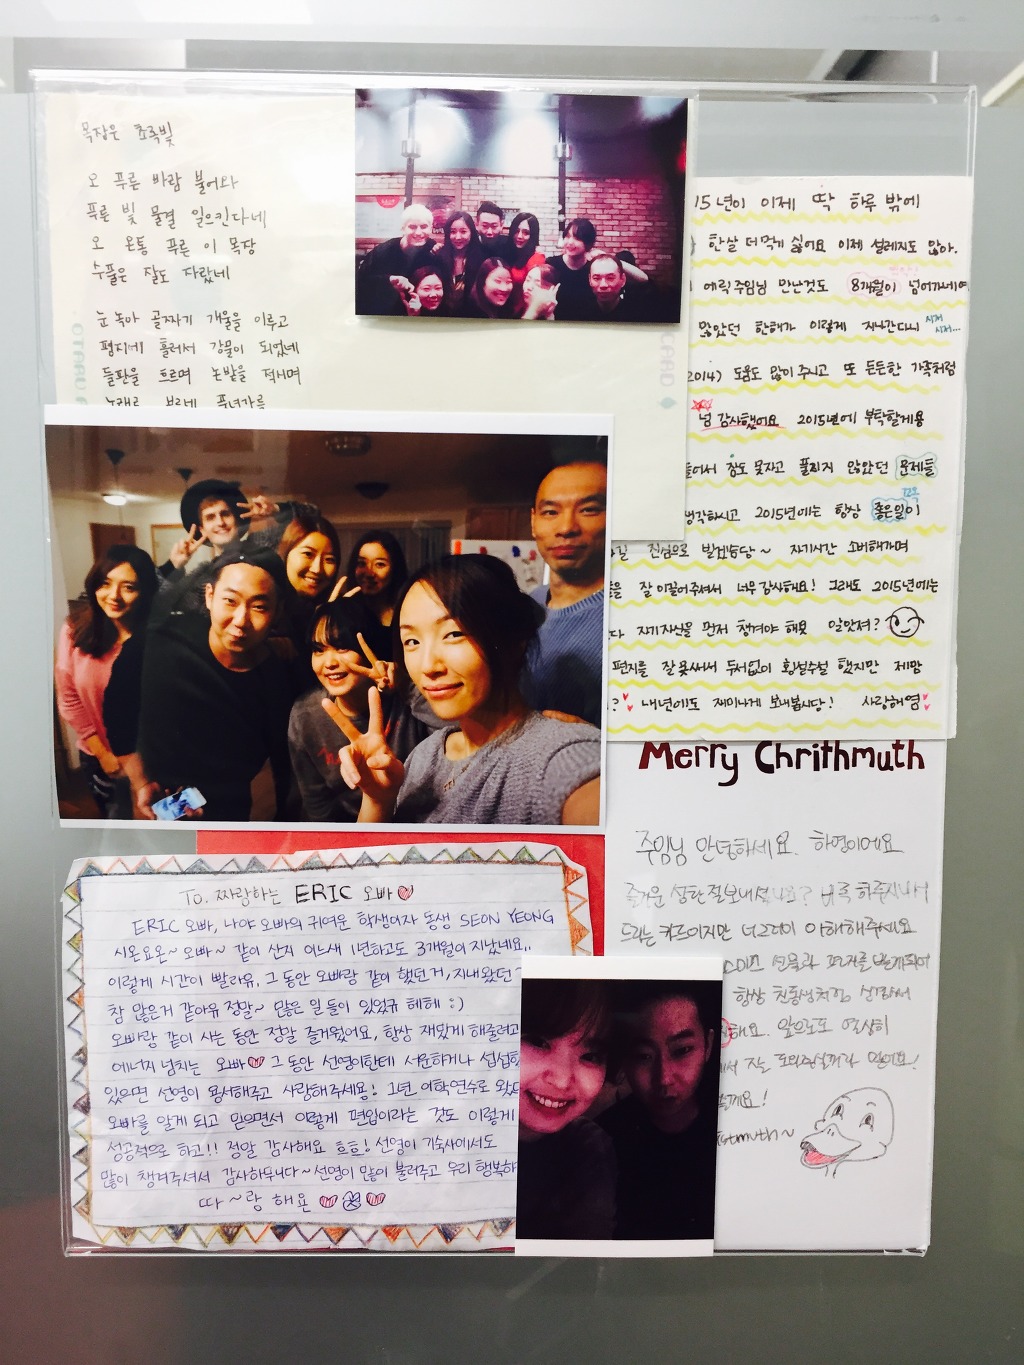 목장은 초록빛
오 푸른 바람 불어와
푸른 빛 물결 일으킨다네
오 온통 푸른 이 목장
수풀은 잘도 자랐네
눈 녹아 골짜기 개울을 이루고
폄지에 흘러서 강물이 되었네
들판을 흐르며 논밭을 적시며
CARD
15년이 이제 딱 하루 밖에
한살 더먹기 싫어요 이제 설레지도 않아.
에릭주임님 만난것도 8개월이 넘어가네여
많았던 한해가 이렇게 지나간다니
2014) 도움도 많이 주시고 또 든든한 가족처럼
넘 감사했어요 2015년에 부탁할게용
잠도 못자고 풀리지 않았던 문제들
생각하시고 2015년에는 항상 좋은일이
진심으로 빌겠습당~ 자기시간 소비해가며
잘 이끌어주셔서 너무 감사해요! 그래도 2015년에는
자기자신을 먼저 챙겨야 해욧 알았져?
편지를 잘 못써서 두서없이 횡설수설 했지만 제맘
내년에도 재미나게 보내봅시당! 사랑해염
Merry Chrithmuth
주임님 안녕하세요. 하영이에요
즐거운 성탄절보내셨나요?
드리는 카드이지만 너그러이 이해해주세요
항상 친동생처럼
해요. 앞으로도 열심히
To. 짜랑하는 ERIC 오빠
ERIC 오빠, 나야 오빠의 귀여운 학생이자 동생 SEON YEONG
시온요온~ 오빠~ 같이 산지 어느새 1년하고도 3개월이 지났네요..
이렇게 시간이 빨라유, 그 동안 오빠랑 같이 했던 거, 지내왔던
참 많은거 같아유 정말~ 많은 일들이 있었규 헤헤 :)
오빠랑 같이 사는 동안 정말 즐거웠어요, 항상 재밌게 해줄려고
에너지 넘치는 오빠 그 동안 선영이한테 서운하거나 섭섭한
있으면 선영이 용서해주고 사랑해주세용! 그년 어학연수로 왔다
오빠를 알게 되고 믿으면서 이렇게 편입이라는 것도 이렇게
성공적으로 하고!! 정말 감사해요 흐흐! 선영이 기숙사에서도
많이 챙겨주셔서 감사하두니다~ 선영이 많이 불러주고 우리 행복하
따~랑 해욘